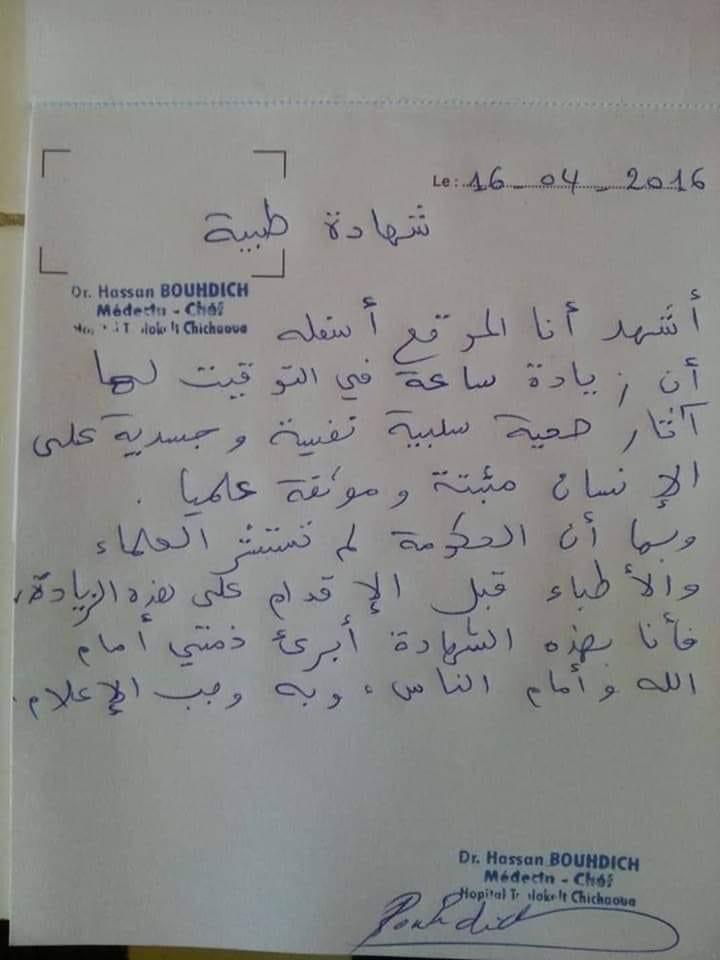 Le : 16_04_2016
شهادة طبية
Dr. Hassan BOUHDICH
Médecin - Chef
Chichaoua
أشهد أنا الموقع أسفله
أن زيادة ساعة في التوقيت لها
آثار صحية سلبية نفسية وجسدية على
الإنسان مثبتة وموثقة علميا .
وبما أن الحكومة لم تستشر العلماء
والأطباء قبل الإقدام على هذه الزيادة،
فأنا بهذه الشهادة أبرئ ذمتي أمام
الله وأمام الناس، وبه وجب الإعلام.
Dr. Hassan BOUHDICH
Médecin - Chef
Hopital Chichaoua
Bouhdich